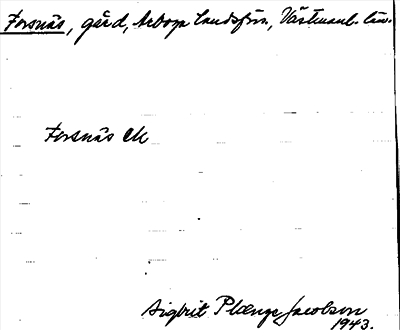 Forsnäs, gård, Arboga landsförs., Västmanl. län.
Forsnäs EK
Sigbrit Plænge Jacobson
1943.